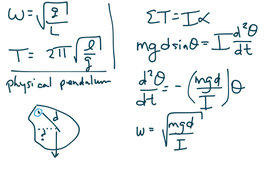 ω = √(g/L)
T = 2π √(l/g)
physical pendulum
d
ΣT = Iα
mgd sinθ = I d²θ/dt
d²θ/dt = -(mgd/I)θ
ω = √(mgd/I)